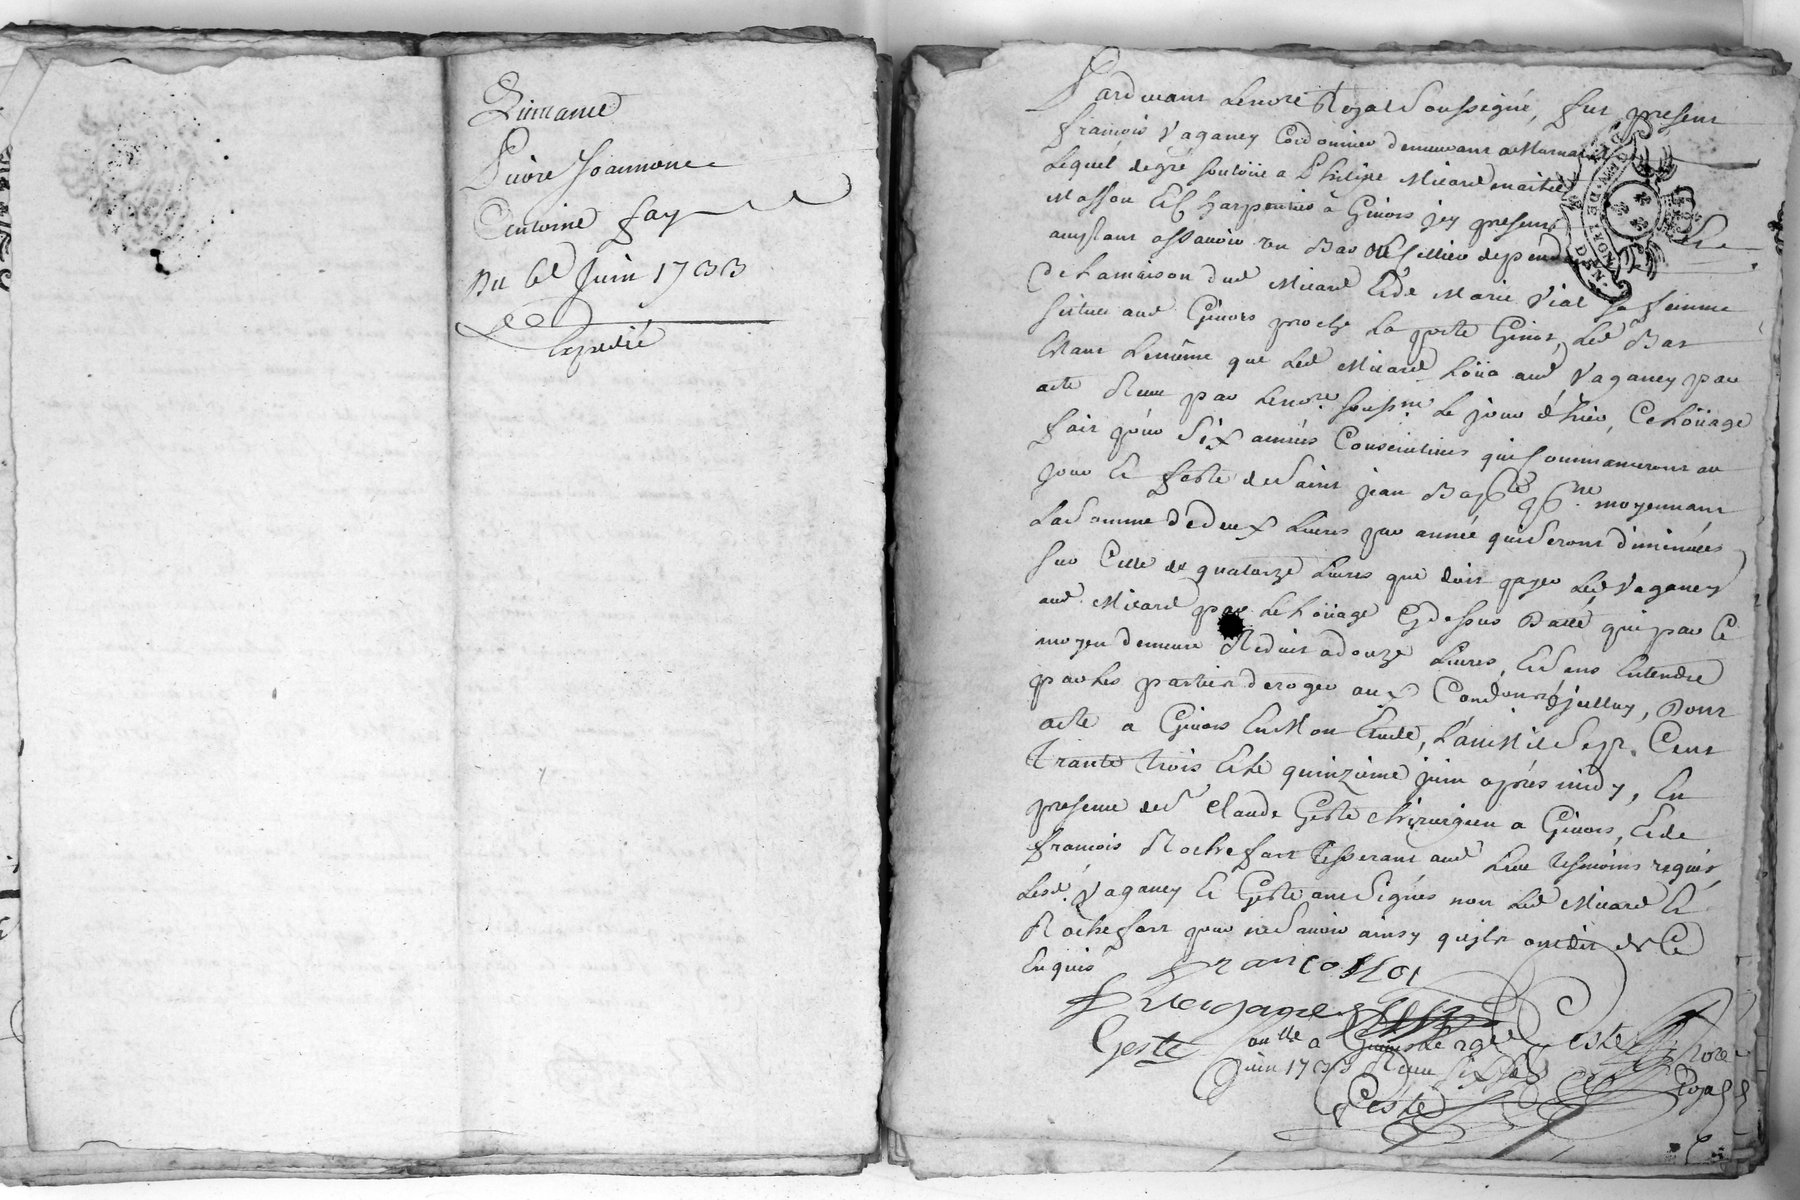 Quittance
Pierre Joannone
Antoine fay
Du 6e Juin 1733
Expedié
Pardevant Le no.re Royal Soussigné, fut present
françois Vaganey Cordonnier demeurant a
Lequel de gré soutoüe a Philipe Micard maitre
Masson Et Charpentier à Givors icy present
acceptant assavoir un Bas de Cellier dependant
De La maison dud Micard Et de Marie Vial sa femme
scituée aud Givors proche La porte Givor, Led Bas
Etant Le même que Led Micard Loüa aud Vaganey par
acte Receu par Le no.re souss.né Le jour d'hier, Ce Loüage
fait pour Six années Consecutives qui Commanceront au
jour Et feste de Saint jean Bap.te p.ne moyennant
La Somme de deux Livres par année qui Seront diminuées
sur Celle de quatorze Livres que doit payer Led Vaganey
aud Micard par Le Loüage Cy dessus Datté, qui par Ce
moyen demeure Reduit a douze Livres, Et Sans Entendre
par Les parties deroger aux Conditions d'jcelluy, Dont
acte a Givors En Mon Etude, L'an Mil Sept Cent
Trante trois, Et Le quinzieme juin après midy, En
presence de S.r Claude Geste Chirurgien a Givors, Et de
françois Rochefort Tisserant aud Lieu Tesmoins requis,
Lesd. Vaganey Et Geste ont Signés non Led Micard Et
Rochefort pour ne Savoir ainsy qu'ils ont dit de Ce
Enquis
francois
Vaganey
Geste Geste No.re
Con.llé a Givors le
Juin 1733 Receu Six sols Royal
Geste
GEN. DE LYON